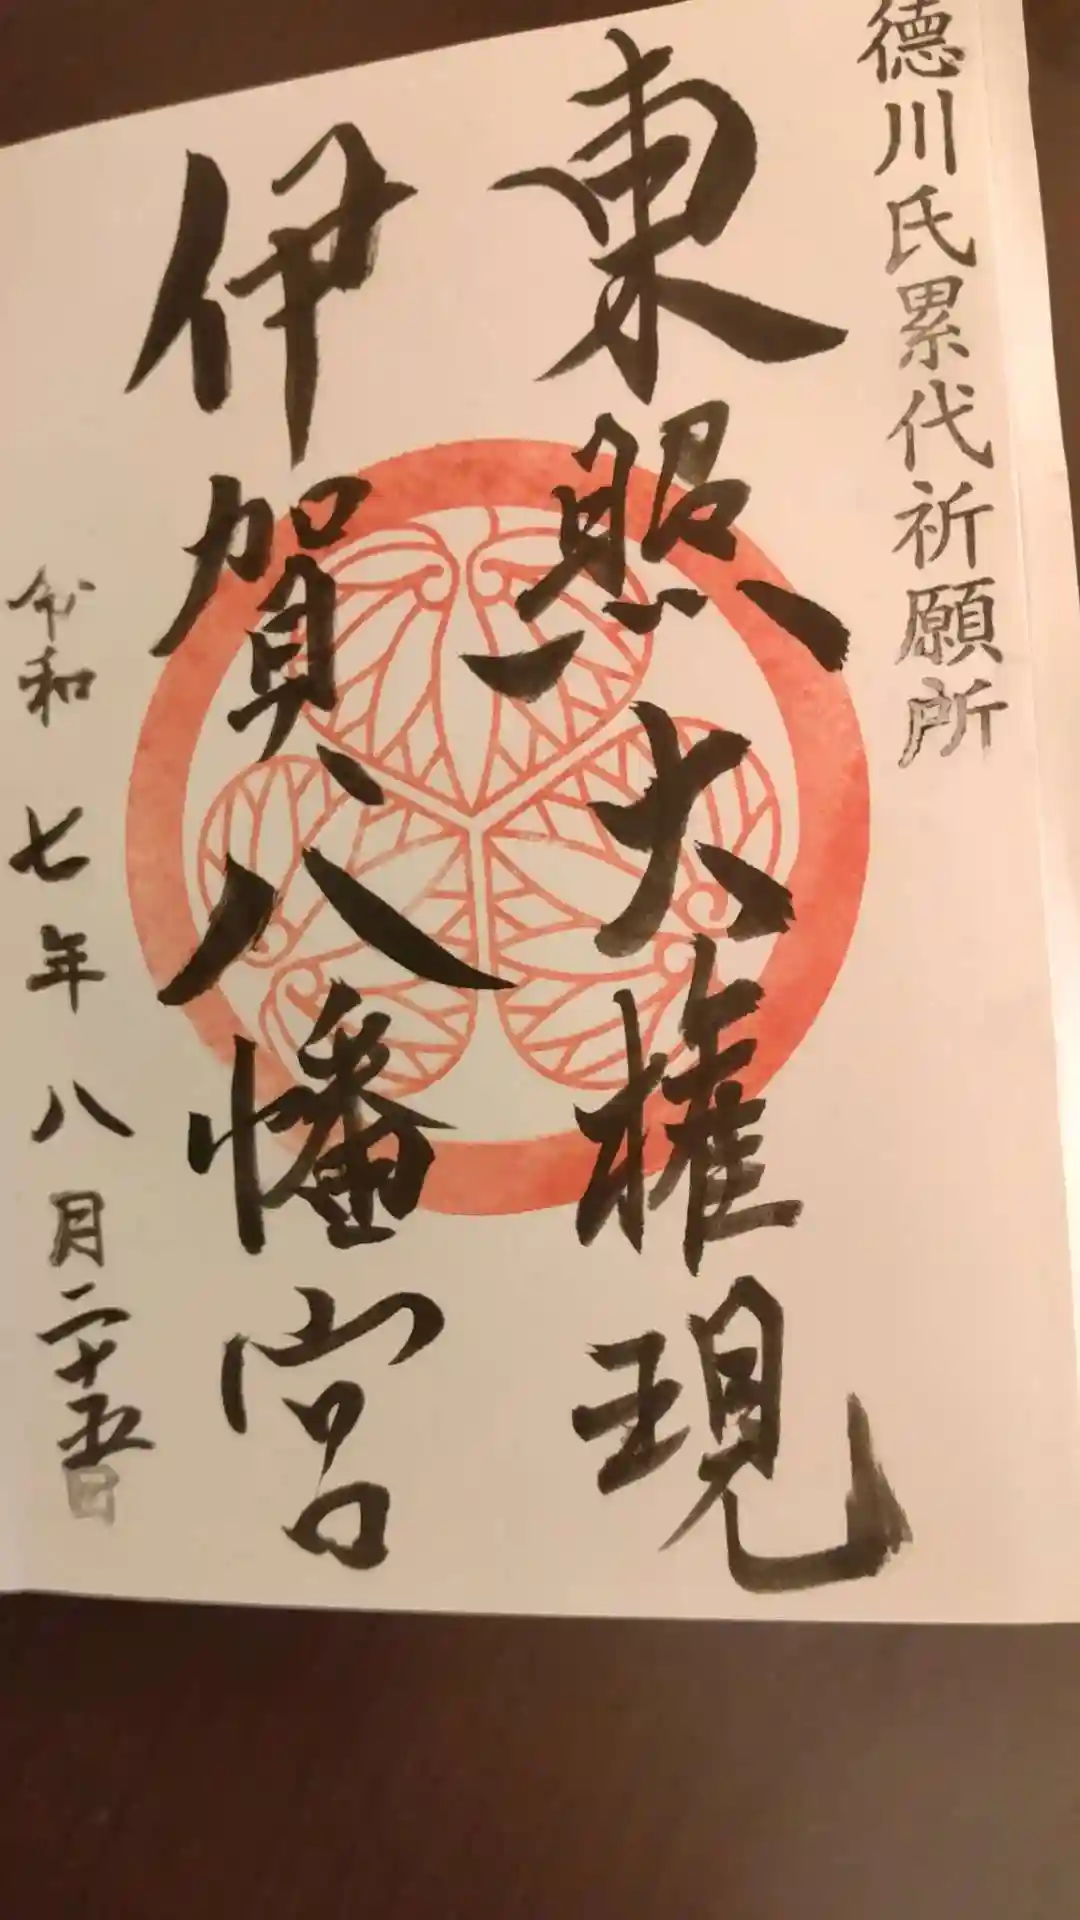 徳川氏累代祈願所
東照大権現
伊賀八幡宮
令和七年八月二十五日